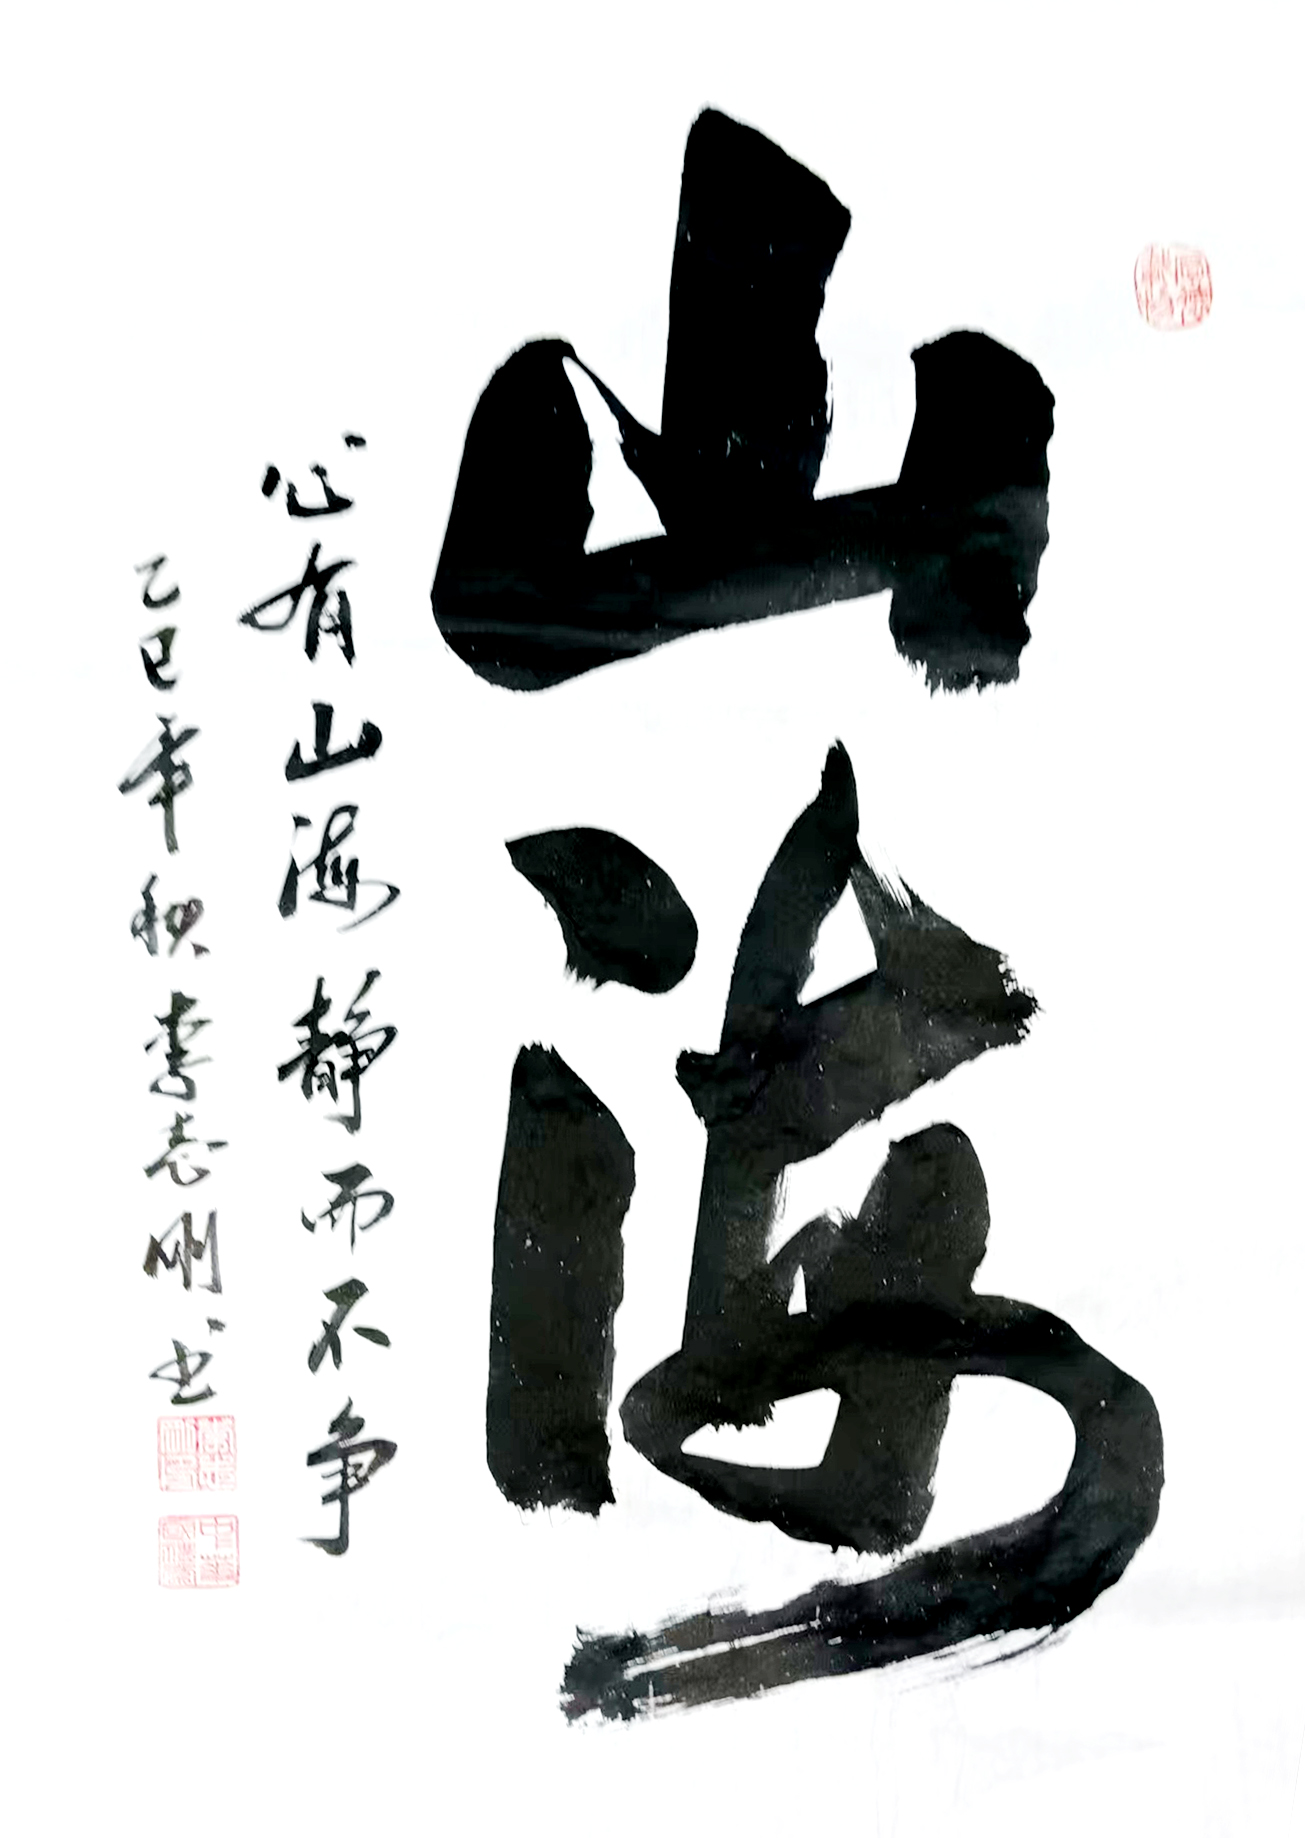 山海
心有山海静而不争
乙巳年秋李志刚书